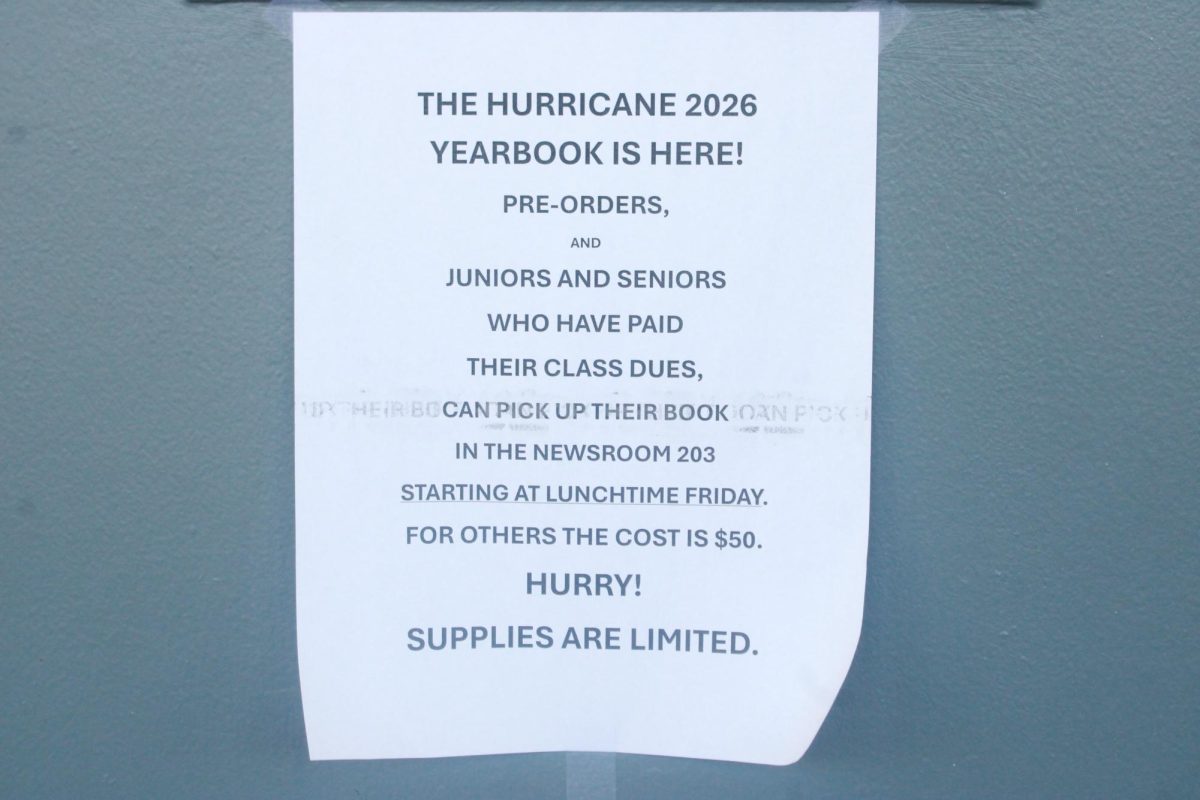 THE HURRICANE 2026
YEARBOOK IS HERE!
PRE-ORDERS,
AND
JUNIORS AND SENIORS
WHO HAVE PAID
THEIR CLASS DUES,
CAN PICK UP THEIR BOOK
IN THE NEWSROOM 203
STARTING AT LUNCHTIME FRIDAY.
FOR OTHERS THE COST IS $50.
HURRY!
SUPPLIES ARE LIMITED.